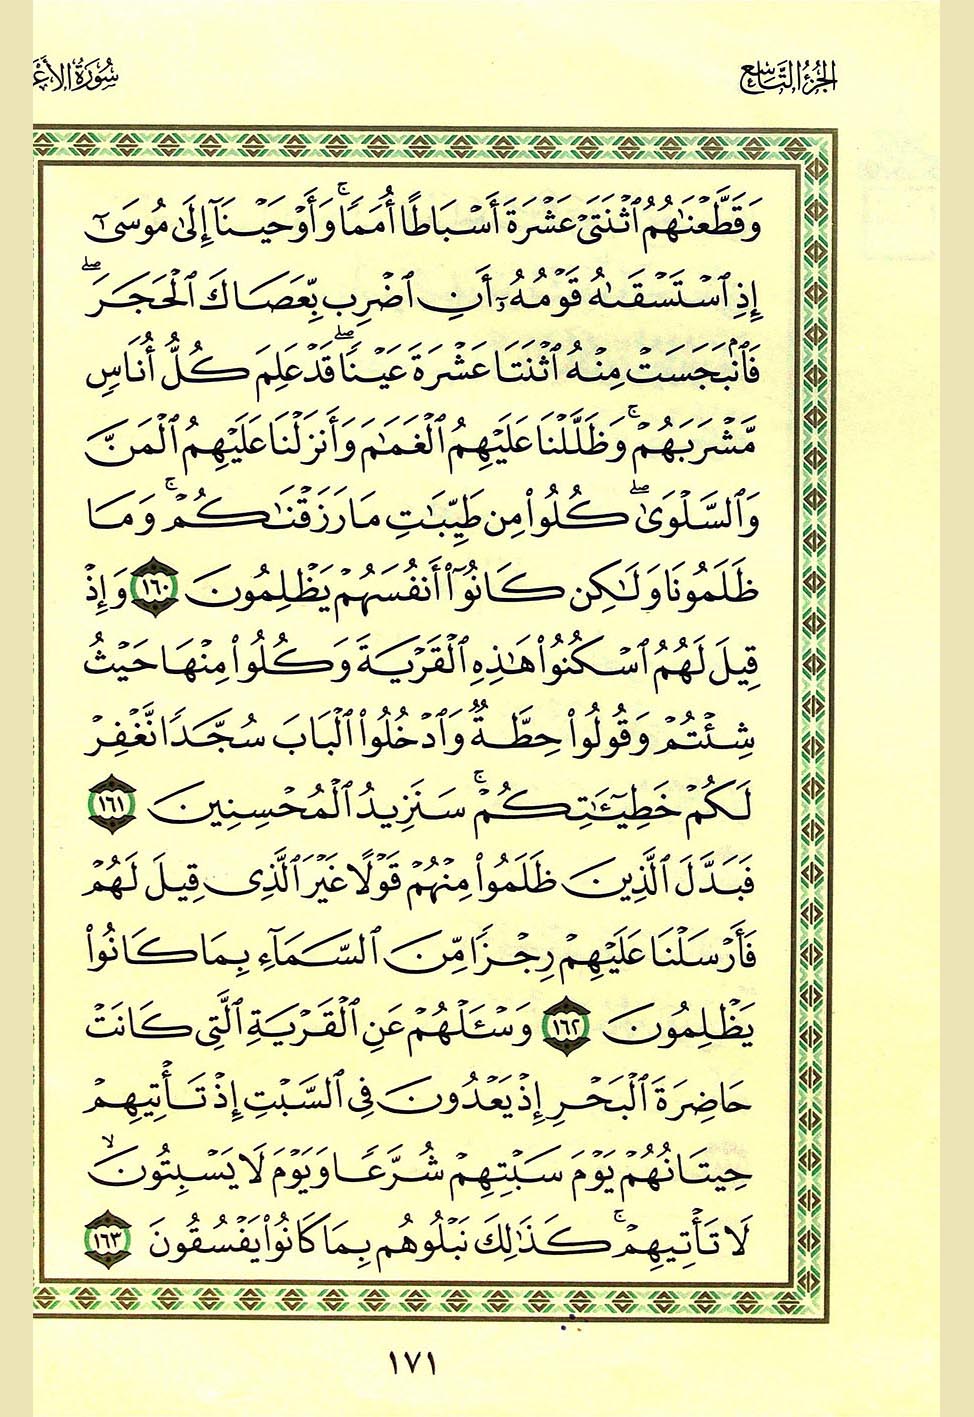 الجزء التاسع
سورة الأع
وَقَطَّعْنَٰهُمُ ٱثْنَتَىْ عَشْرَةَ أَسْبَاطًا أُمَمًا ۚ وَأَوْحَيْنَآ إِلَىٰ مُوسَىٰٓ
إِذِ ٱسْتَسْقَىٰهُ قَوْمُهُۥٓ أَنِ ٱضْرِب بِّعَصَاكَ ٱلْحَجَرَ ۖ
فَٱنۢبَجَسَتْ مِنْهُ ٱثْنَتَا عَشْرَةَ عَيْنًا ۖ قَدْ عَلِمَ كُلُّ أُنَاسٍ
مَّشْرَبَهُمْ ۚ وَظَلَّلْنَا عَلَيْهِمُ ٱلْغَمَٰمَ وَأَنزَلْنَا عَلَيْهِمُ ٱلْمَنَّ
وَٱلسَّلْوَىٰ ۖ كُلُوا۟ مِن طَيِّبَٰتِ مَا رَزَقْنَٰكُمْ ۚ وَمَا
ظَلَمُونَا وَلَٰكِن كَانُوٓا۟ أَنفُسَهُمْ يَظْلِمُونَ ١٦٠ وَإِذْ
قِيلَ لَهُمُ ٱسْكُنُوا۟ هَٰذِهِ ٱلْقَرْيَةَ وَكُلُوا۟ مِنْهَا حَيْثُ
شِئْتُمْ وَقُولُوا۟ حِطَّةٌ وَٱدْخُلُوا۟ ٱلْبَابَ سُجَّدًا نَّغْفِرْ
لَكُمْ خَطِيٓـَٰٔتِكُمْ ۚ سَنَزِيدُ ٱلْمُحْسِنِينَ ١٦١
فَبَدَّلَ ٱلَّذِينَ ظَلَمُوا۟ مِنْهُمْ قَوْلًا غَيْرَ ٱلَّذِى قِيلَ لَهُمْ
فَأَرْسَلْنَا عَلَيْهِمْ رِجْزًا مِّنَ ٱلسَّمَآءِ بِمَا كَانُوا۟
يَظْلِمُونَ ١٦٢ وَسْـَٔلْهُمْ عَنِ ٱلْقَرْيَةِ ٱلَّتِى كَانَتْ
حَاضِرَةَ ٱلْبَحْرِ إِذْ يَعْدُونَ فِى ٱلسَّبْتِ إِذْ تَأْتِيهِمْ
حِيتَانُهُمْ يَوْمَ سَبْتِهِمْ شُرَّعًا وَيَوْمَ لَا يَسْبِتُونَ ۙ
لَا تَأْتِيهِمْ ۚ كَذَٰلِكَ نَبْلُوهُم بِمَا كَانُوا۟ يَفْسُقُونَ ١٦٣
١٧١